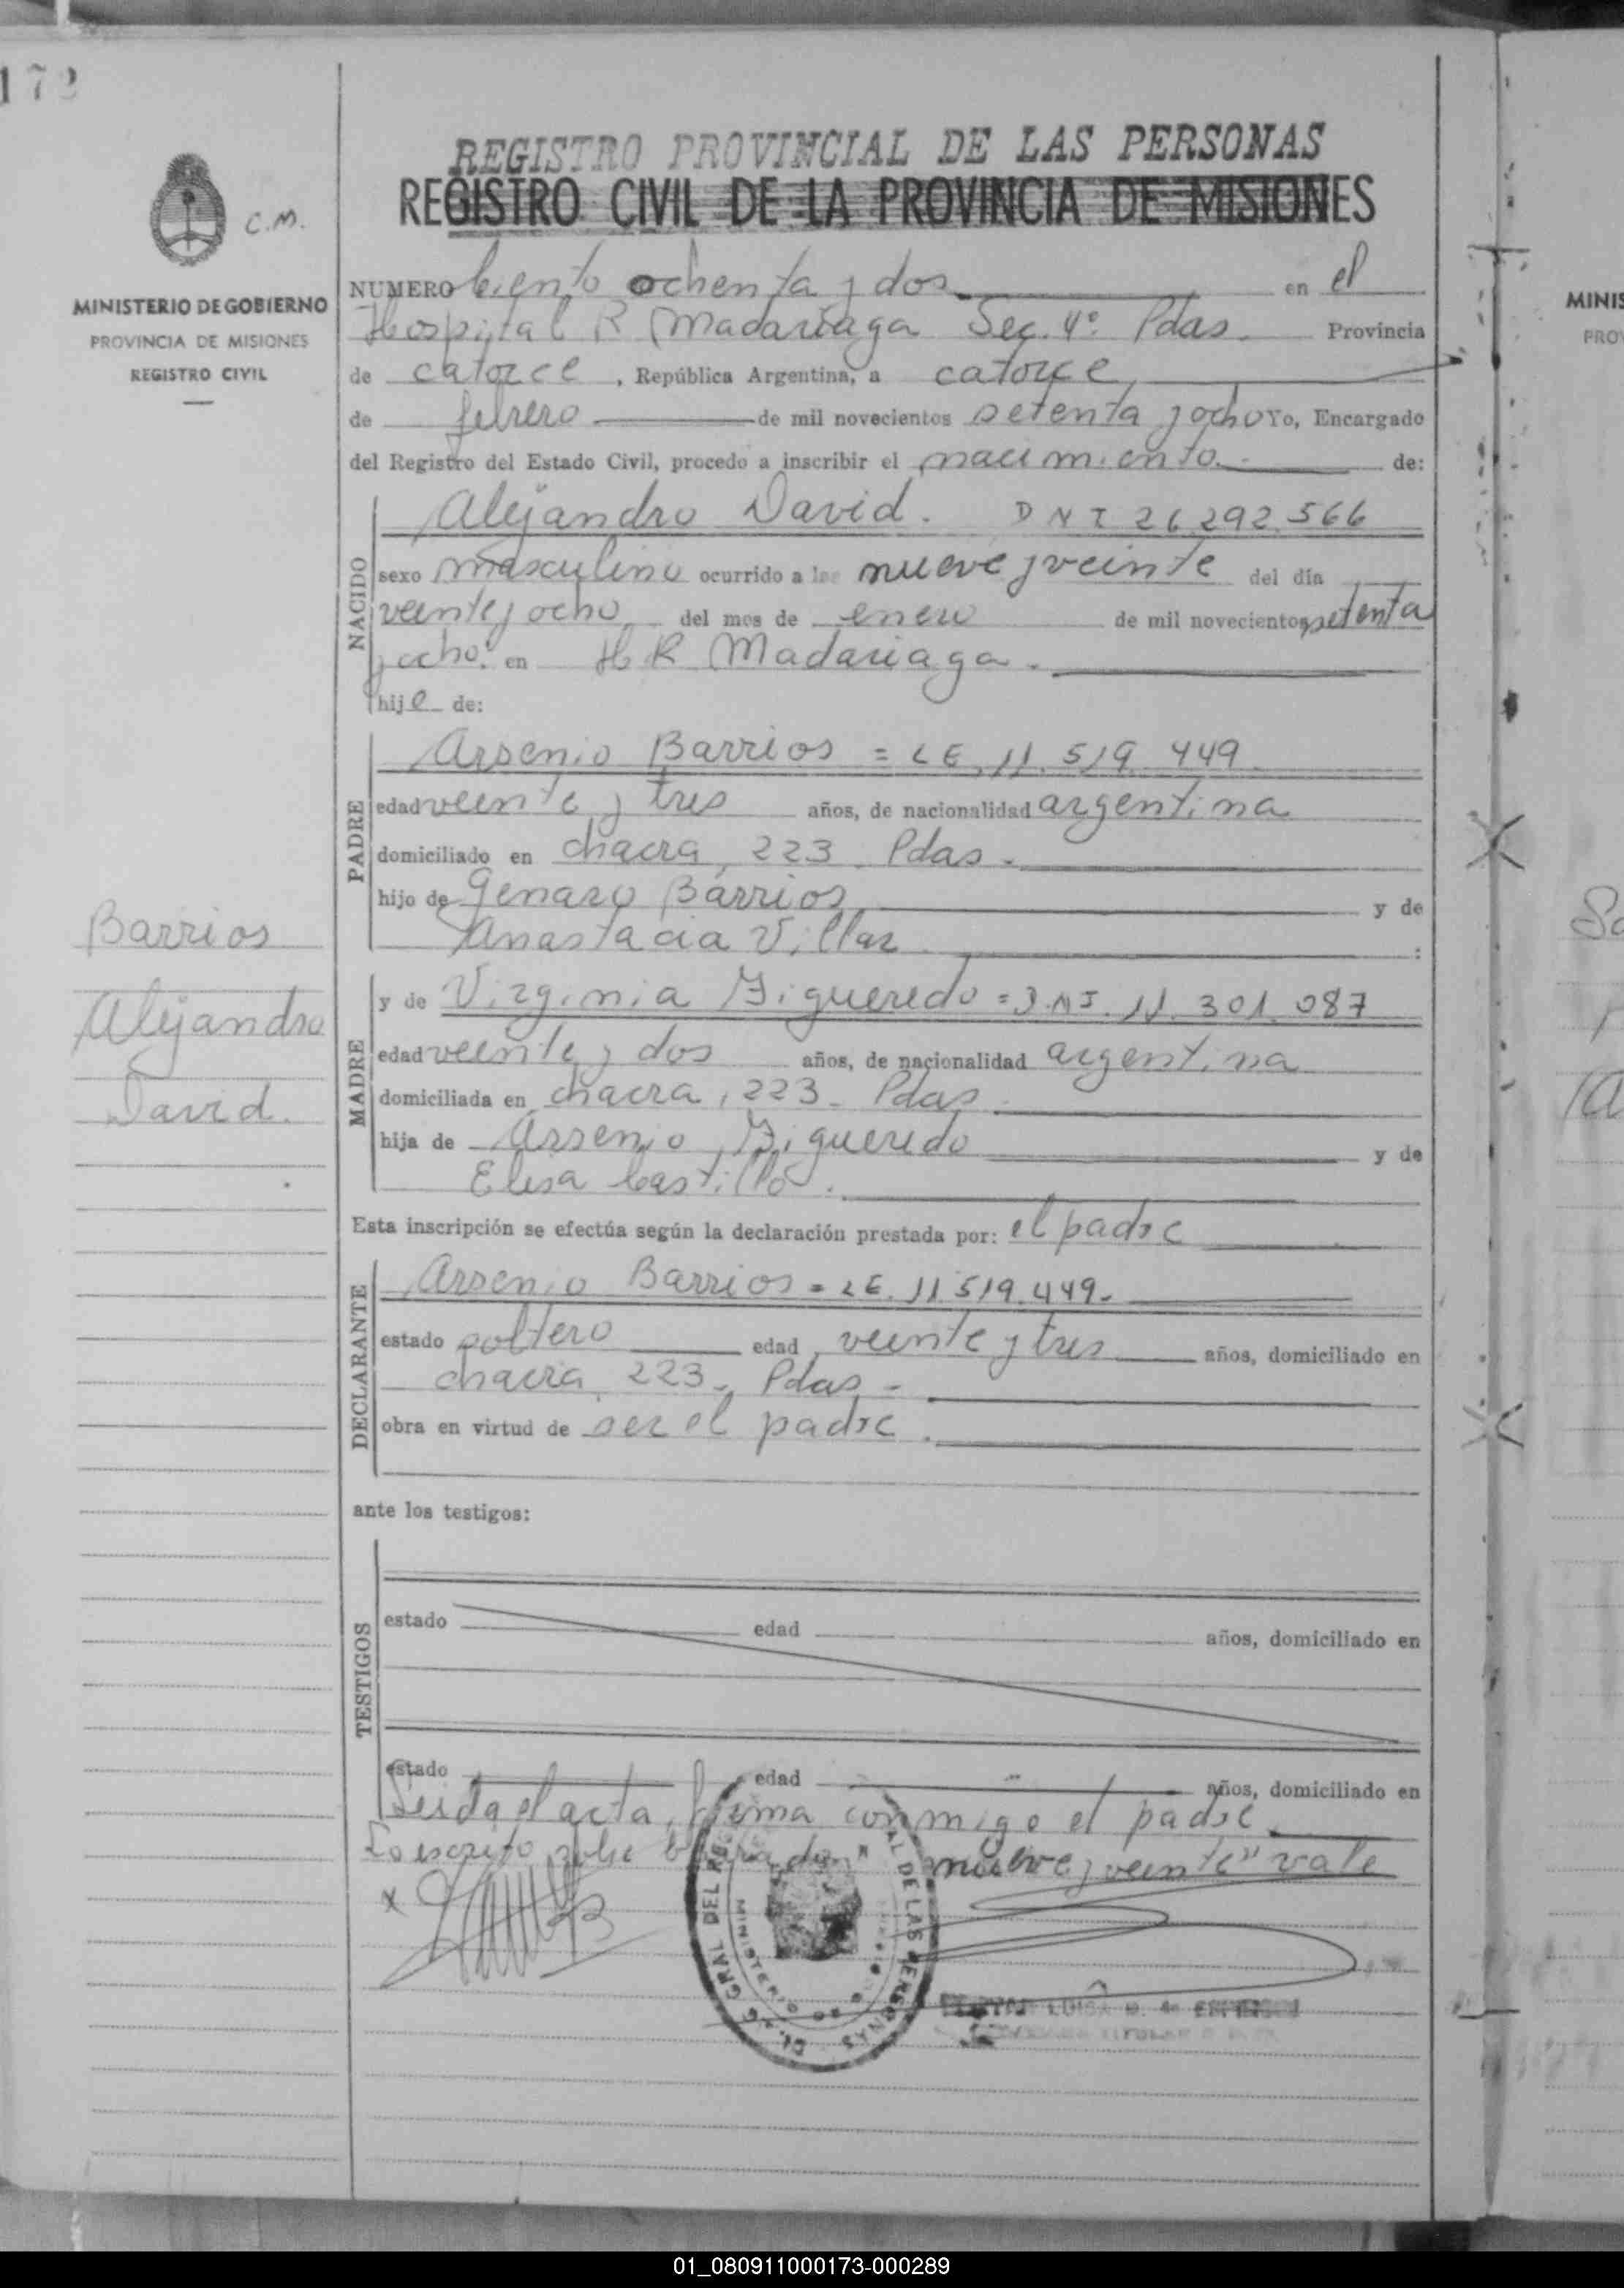 172
REGISTRO PROVINCIAL DE LAS PERSONAS
REGISTRO CIVIL DE LA PROVINCIA DE MISIONES
C.M.
MINISTERIO DE GOBIERNO
PROVINCIA DE MISIONES
REGISTRO CIVIL
NUMERO Ciento ochenta y dos en el
Hospital R Madariaga Sec. 4º Pdas. Provincia
de catorce, República Argentina, a catorce
de febrero de mil novecientos setenta y ocho Yo, Encargado
del Registro del Estado Civil, procedo a inscribir el nacimiento. de:
NACIDO
Alejandro David. DNI 26.292.566
sexo masculino ocurrido a las nueve y veinte del día
veinte y ocho del mes de enero de mil novecientos setenta
y ocho. en H R Madariaga.
hijo de:
PADRE
Arsenio Barrios = LE. 11.519.449
edad veinte y tres años, de nacionalidad argentina
domiciliado en chacra, 223. Pdas.
hijo de Genaro Barrios y de
Anastacia Villar :
Barrios
Alejandro
David.
MADRE
y de Virginia Figueredo = D.N.I. 11.301.087
edad veinte y dos años, de nacionalidad argentina
domiciliada en chacra, 223. Pdas
hija de Arsenio Figueredo y de
Elisa Castillo.
Esta inscripción se efectúa según la declaración prestada por: el padre
DECLARANTE
Arsenio Barrios = LE. 11.519.449.
estado soltero edad veinte y tres años, domiciliado en
chacra, 223. Pdas.
obra en virtud de ser el padre.
ante los testigos:
TESTIGOS
estado edad años, domiciliado en
estado edad años, domiciliado en
Leida el acta, firma conmigo el padre.
Lo escrito sobre borrado "nueve y veinte" vale
x
GRAL DEL RE AL DE LAS PERSONAS
MINISTERIO
LUISA
TITULAR
MINIS
PRO
01_080911000173-000289